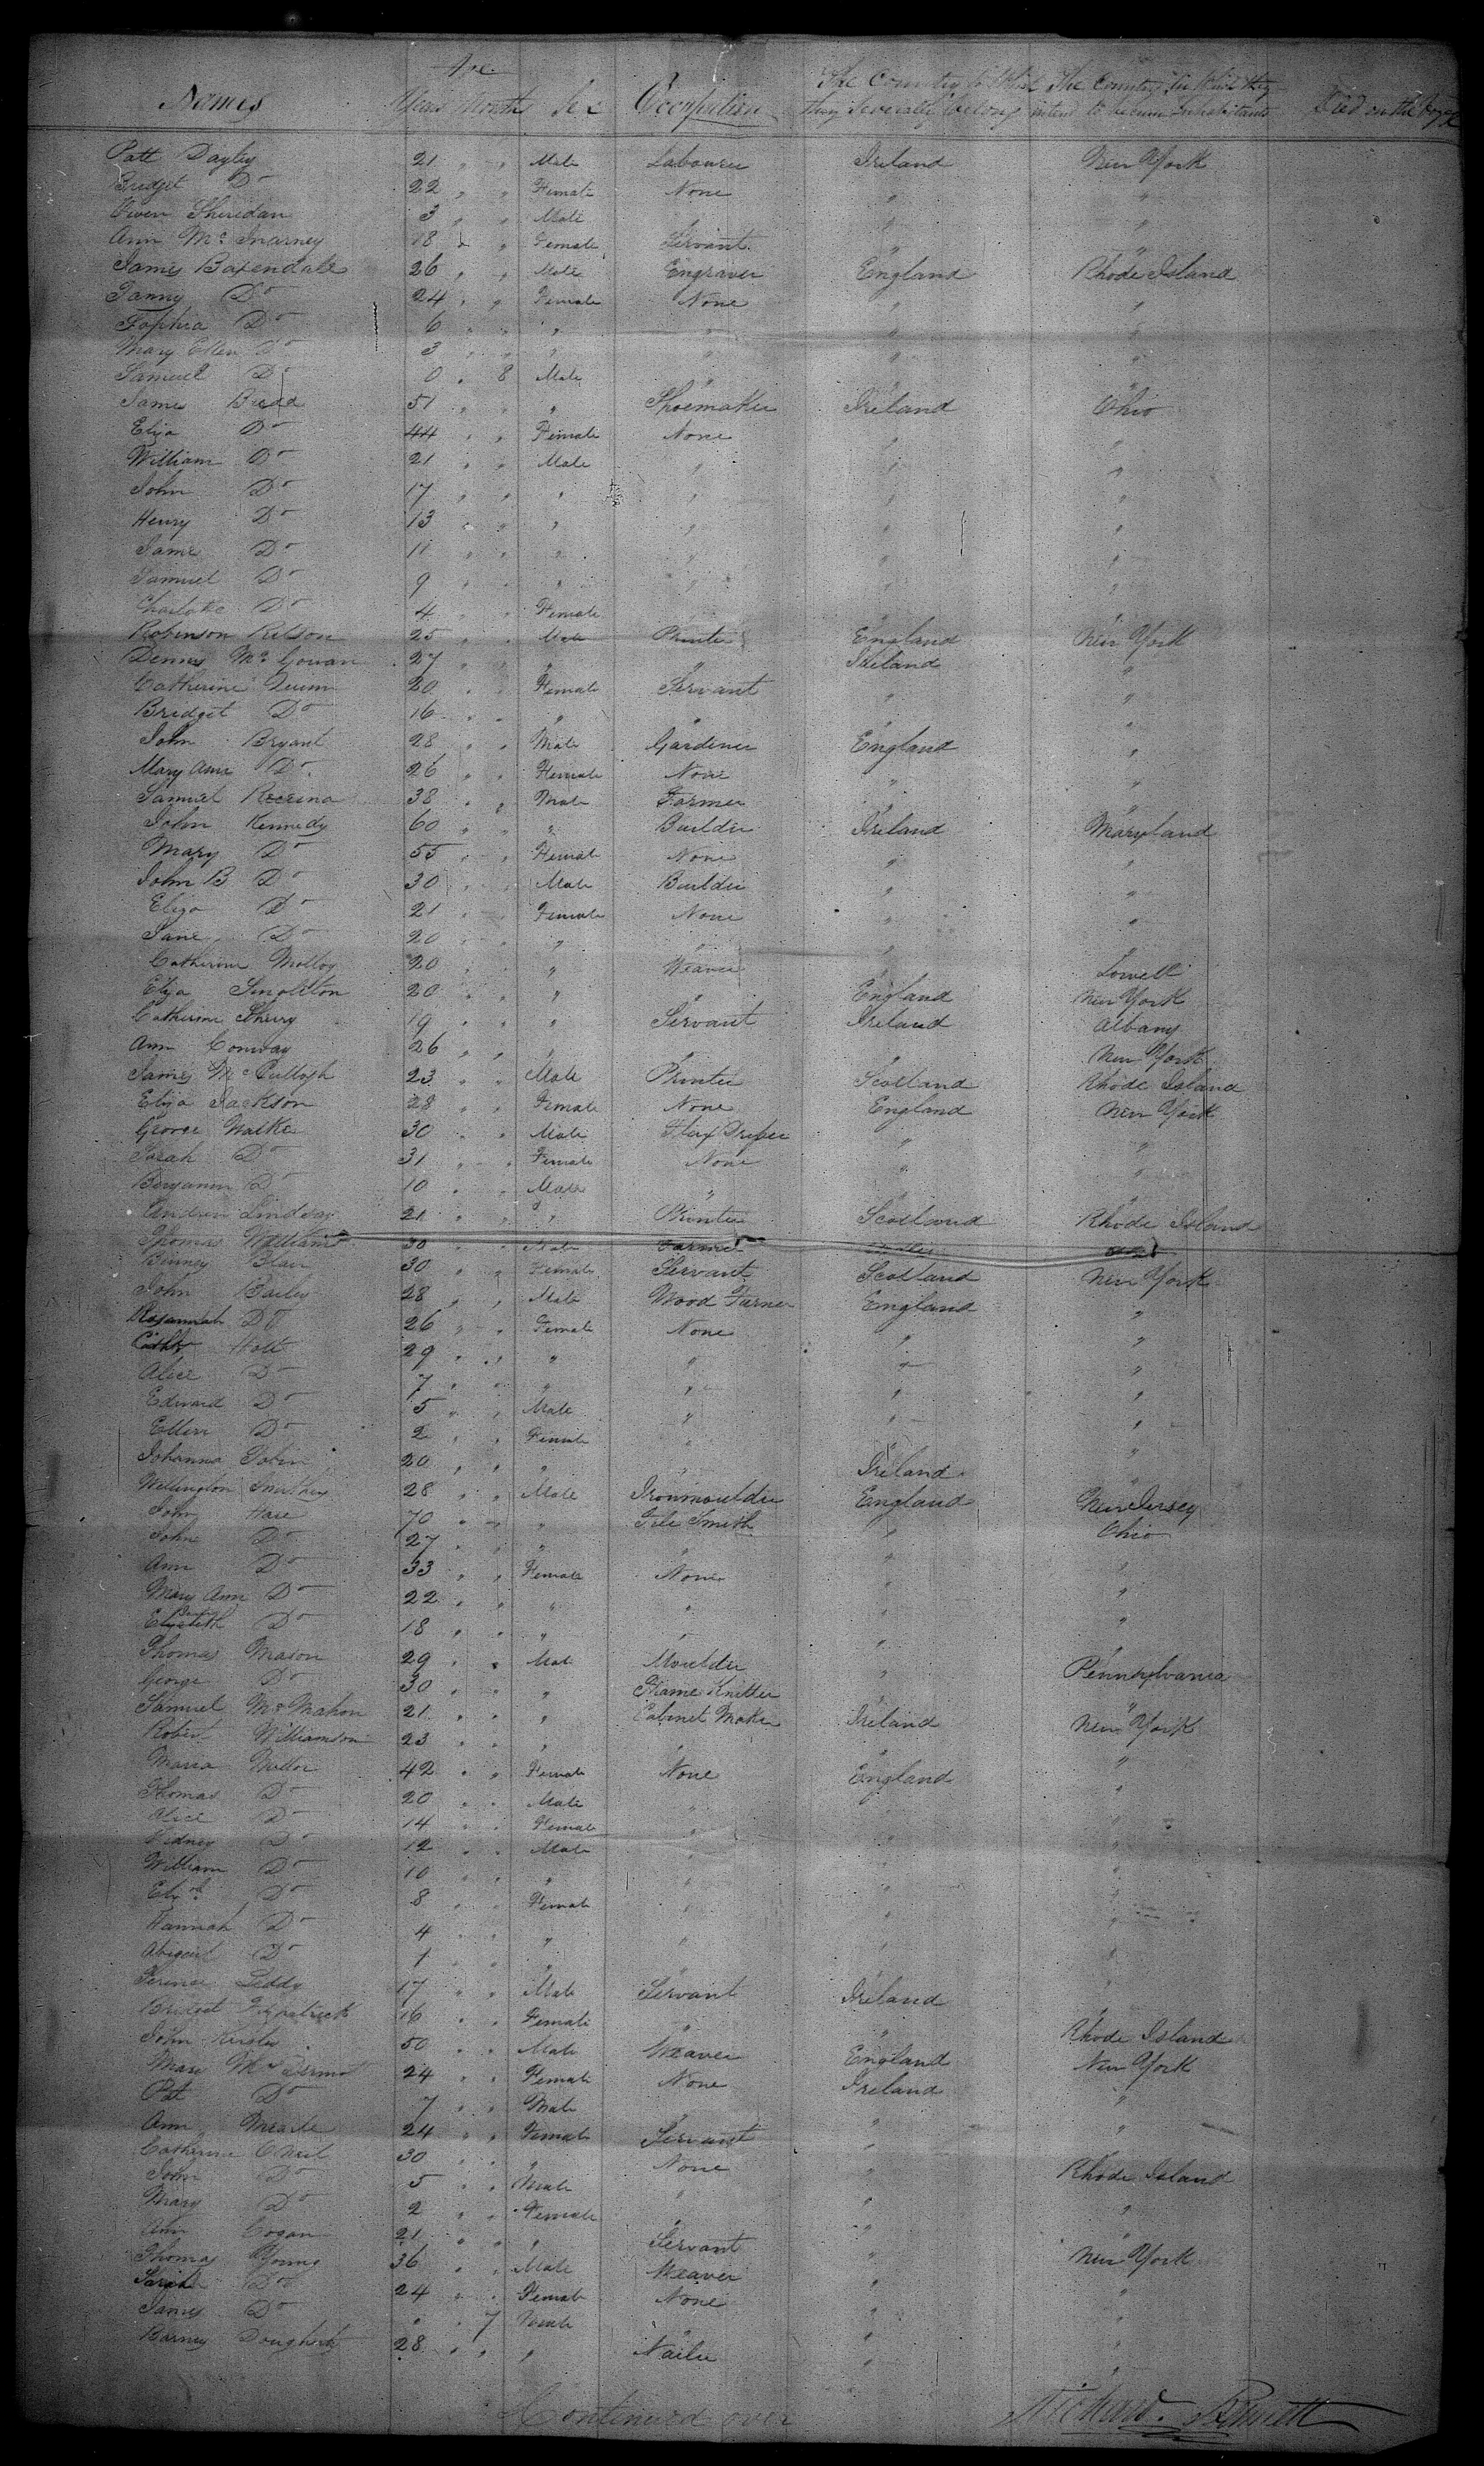 Names Age Years Month Sex Occupation The Country to which they Severally belong The Country in which they intend to become Inhabitants Died on the Voyage
Patt Dayley 21 " " Male Labourer Ireland New York
Bridget Do 22 " " Female None " "
Owen Sheridan 3 " " Male " " "
Ann Mc 18 " " Female Servant " "
James Baxendale 26 " " Male Engraver England Rhode Island
Fanny Do 24 " " Female None " "
Sophia Do 6 " " " " " "
Mary Ellen Do 3 " " " " " "
Samuel Do 0 " 8 Male " " "
James 51 " " " Shoemaker Ireland Ohio
Eliza Do 44 " " Female None " "
William Do 21 " " Male " " "
John Do 17 " " " " " "
Henry Do 13 " " " " " "
Jame Do 11 " " " " " "
Samuel Do 9 " " " " " "
Charlotte Do 4 " " Female " "
Robinson 25 " " Male Printer England New York
Dennis Mc Gowan 27 " " " " Ireland "
Catherine Quinn 20 " " Female Servant " "
Bridget Do 16 " " " " "
John Bryant 28 " " Male Gardener England "
Mary Ann Do 26 " " Female None " "
Samuel 38 " " Male Farmer " "
John Kennedy 60 " " " Builder Ireland Maryland
Mary Do 55 " " Female None " "
John B Do 30 " " Male Builder " "
Eliza Do 21 " " Female None " "
Jane Do 20 " " " " "
Catherine Molloy 20 " " " Weaver " Lowell
Eliza Singleton 20 " " " " England New York
Catherine Sherry 19 " " " Servant Ireland Albany
Ann Conway 26 " " " " " New York
James Mc Cullogh 23 " " Male Printer Scotland Rhode Island
Eliza Jackson 28 " " Female None England New York
George Walker 30 " " Male Flax Dresser " "
Sarah Do 31 " " Female None " "
Benjamin Do 10 " " Male " " "
Andrew Lindsay 21 " " " Printer Scotland Rhode Island
Thomas William 30 " " Male Farmer
Binney Blair 30 " " Female Servant Scotland New York
John Bailey 28 " " Male Wood Turner England "
Rosannah Do 26 " " Female None " "
Holt 29 " " " " " "
Alice Do 7 " " " " " "
Edward Do 5 " " Male " " "
Ellen Do 2 " " Female " "
Johanna Tobin 20 " " " " Ireland "
Wellington 28 " " Male Ironmoulder England New Jersey
John Hare 70 " " " File Smith " Ohio
John Do 27 " " " " " "
Ann Do 33 " " Female None " "
Mary Ann Do 22 " " " " " "
Do 18 " " " " " "
Thomas Mason 29 " " Male Moulder " Pennsylvania
George Do 30 " " " Frame Knitter "
Samuel Mc Mahon 21 " " " Cabinet Maker Ireland New York
Robert Williamson 23 " " " " " "
Maria Mellor 42 " " Female None England "
Thomas Do 20 " " Male " " "
Alice Do 14 " " Female " " "
Sidney Do 12 " " Male " " "
William Do 10 " " " " " "
Elizth Do 8 " " Female " " "
Hannah Do 4 " " " " " "
Abigail Do 1 " " " " " "
Terence Leddy 17 " " Male Servant Ireland "
Bridget Fitzpatrick 16 " " Female " " Rhode Island
John 50 " " Male Weaver England New York
Mary McDermot 24 " " Female None Ireland "
Pat Do 7 " " Male " " "
Ann 24 " " Female Servant "
Catherine O Neil 30 " " " None " Rhode Island
John Do 5 " " Male " " "
Mary Do 2 " " Female " " "
Ann Cogan 21 " " " Servant " New York
Thomas Young 36 " " Male Weaver " "
Sarah Do 24 " " Female None " "
James Do " " 7 Male " " "
Barney Dougherty 28 " " " Nailer " "
Continued over Richard Bennett